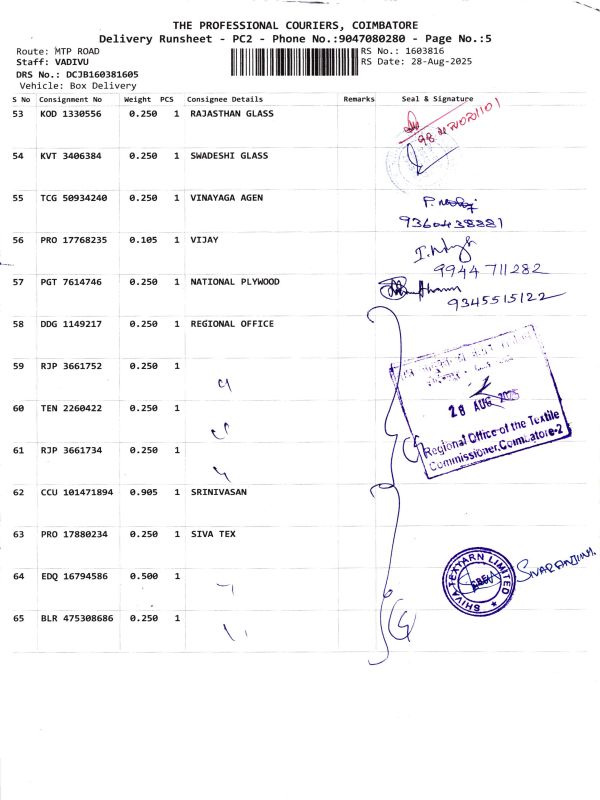 THE PROFESSIONAL COURIERS, COIMBATORE
Delivery Runsheet - PC2 - Phone No.:9047080280 - Page No.:5
Route: MTP ROAD RS No.: 1603816
Staff: VADIVU RS Date: 28-Aug-2025
DRS No.: DCJB160381605
Vehicle: Box Delivery
S No Consignment No Weight PCS Consignee Details Remarks Seal & Signature
53 KOD 1330556 0.250 1 RAJASTHAN GLASS
54 KVT 3406384 0.250 1 SWADESHI GLASS
55 TCG 50934240 0.250 1 VINAYAGA AGEN
9360438881
56 PRO 17768235 0.105 1 VIJAY
9944 711282
57 PGT 7614746 0.250 1 NATIONAL PLYWOOD
9345515122
58 DDG 1149217 0.250 1 REGIONAL OFFICE
59 RJP 3661752 0.250 1
60 TEN 2260422 0.250 1
28 AUG 2025
61 RJP 3661734 0.250 1
Regional Office of the Textile
Commissioner, Coimbatore-2
62 CCU 101471894 0.905 1 SRINIVASAN
63 PRO 17880234 0.250 1 SIVA TEX
64 EDQ 16794586 0.500 1
SHIVA TEXYARN LIMITED
CBE
SIVARANJINI.
65 BLR 475308686 0.250 1